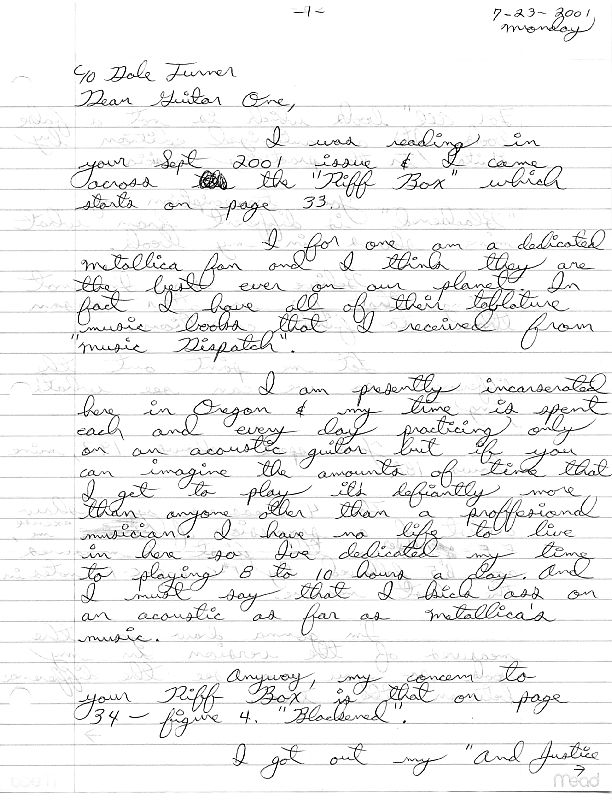 -1-
7-23-2001
monday
c/o Dale Turner
Dear Guitar One,
I was reading in
your Sept 2001 issue & I came
across the "Riff Box" which
starts on page 33.
I for one am a dedicated
metallica fan and I think they are
the best ever on our planet. In
fact I have all of their tablature
music books that I received from
"music Dispatch".
I am presently incarserated
here in Oregon & my time is spent
each and every day practicing only
on an acoustic guitar but if you
can imagine the amounts of time that
I get to play its defiantly more
than anyone other than a proffesional
musician. I have no life to live
in here so I've dedicated my time
to playing 8 to 10 hours a day. And
I must say that I kick ass on
an acoustic as far as metallica's
music.
Anyway, my concern to
your Riff Box is that on page
34 - figure 4. "Blackened".
I got out my "And Justice
→
mead